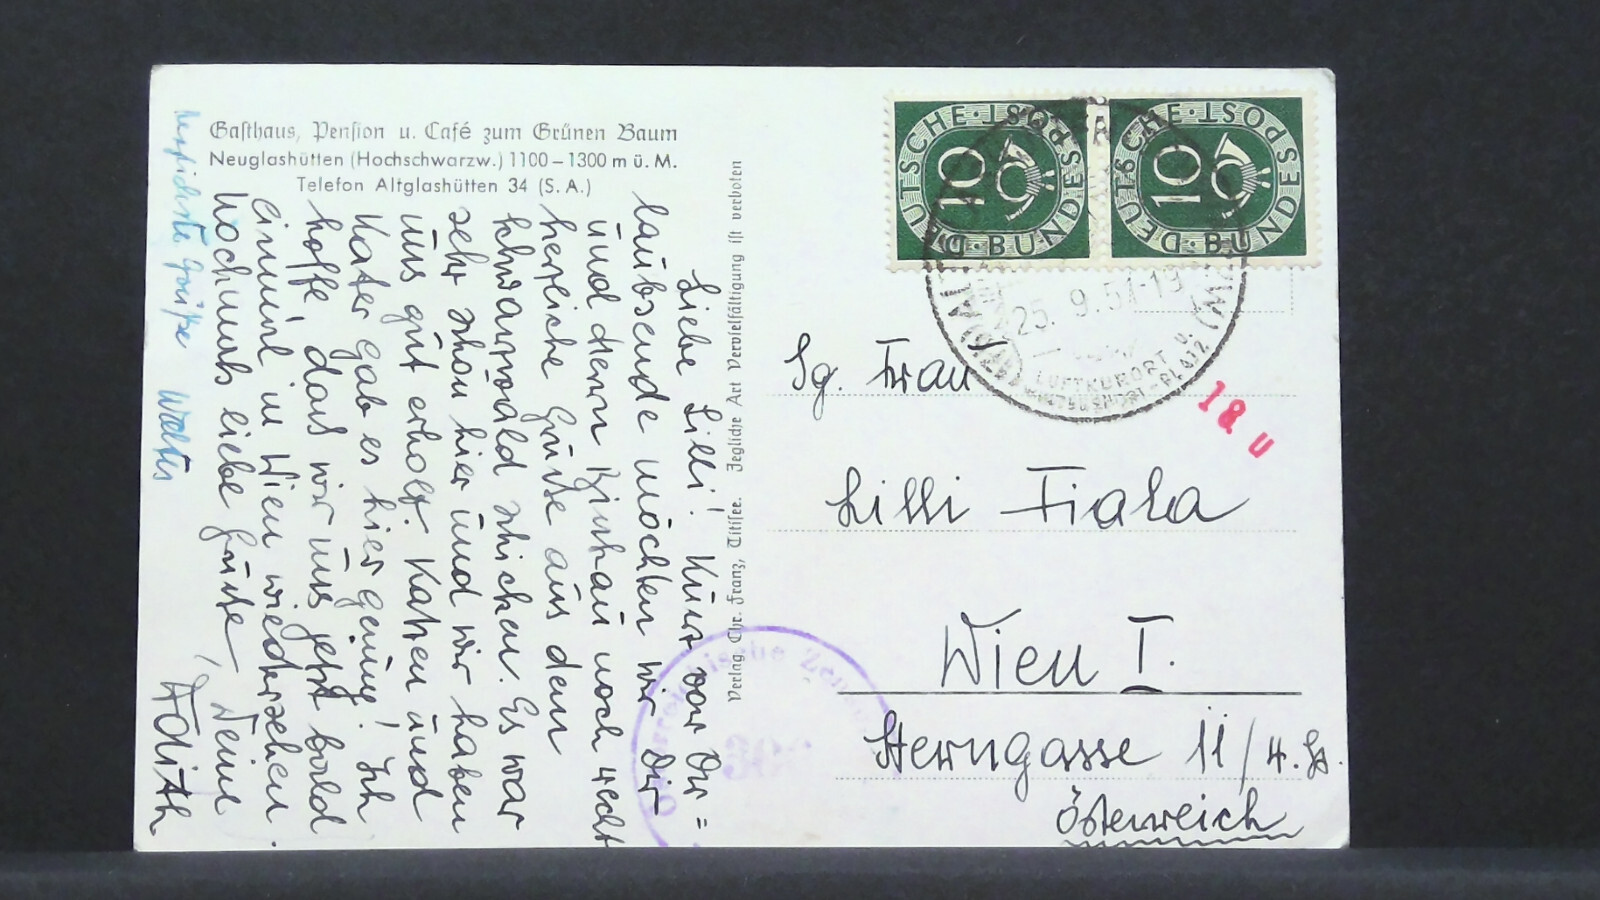 Gasthaus, Pension u. Café zum Grünen Baum
Neuglashütten (Hochschwarzw.) 1100 – 1300 m ü. M.
Telefon Altglashütten 34 (S. A.)
Liebe Lilli! Kurz vor Dir =
laubsende möchten wir Dir
und Deinem noch recht
herzliche Grüße aus dem
Schwarzwald schicken. Es war
sehr schön hier und wir haben
uns gut erholt. Katzen und
Kater gab es hier genug! Ich
hoffe, dass wir uns jetzt bald
einmal in Wien wiedersehen.
Nochmals liebe Grüße, Deine
Edith
Grüße
Verlag Chr. Franz, Titisee. Jegliche Art Vervielfältigung ist verboten
DEUTSCHE BUNDESPOST 10
DEUTSCHE BUNDESPOST 10
25. 9. 51-19
LUFTKURORT u.
18 u
Sg. Frau
Lilli Fiala
Wien I.
Sterngasse 11/4. St.
Österreich
Österreichische